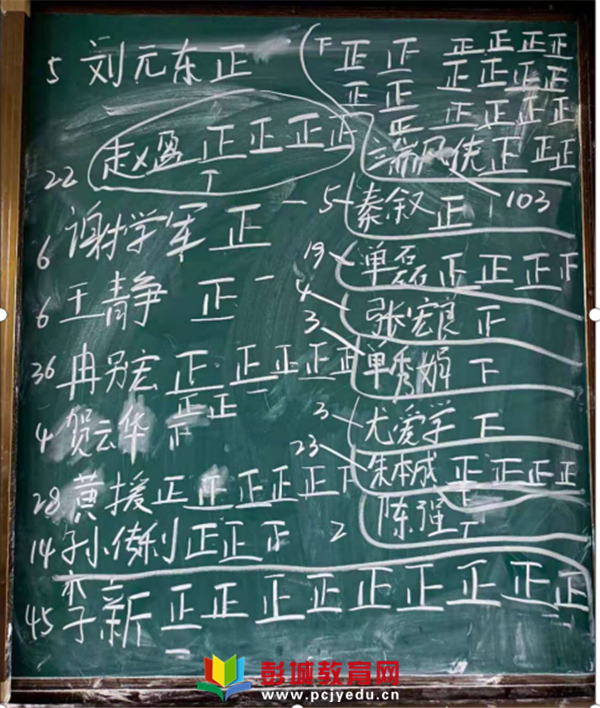 5 刘元东 正
22 赵盈 正 正 正 正 丅
6 谢学军 正 一
6 王静 正 一
36 冉别宏 正 正 正 正 正 正 正 一
4 贺云华 正
28 黄援 正 正 正 正 正 下
14 孙倩利 正 正 正
45 李新 正 正 正 正 正 正 正 正 正
下 正 正 正 正 正 正
正 正 正 正 正 正
正 正 正 正 正
正 正 正
103
5 秦叙 正
19 单磊 正 正 正 下
4 张宏良 正
3 单秀娟 下
3 尤爱学 下
23 朱本成 正 正 正 正 下
2 陈强 丅
彭城教育网
www.pcjyedu.cn